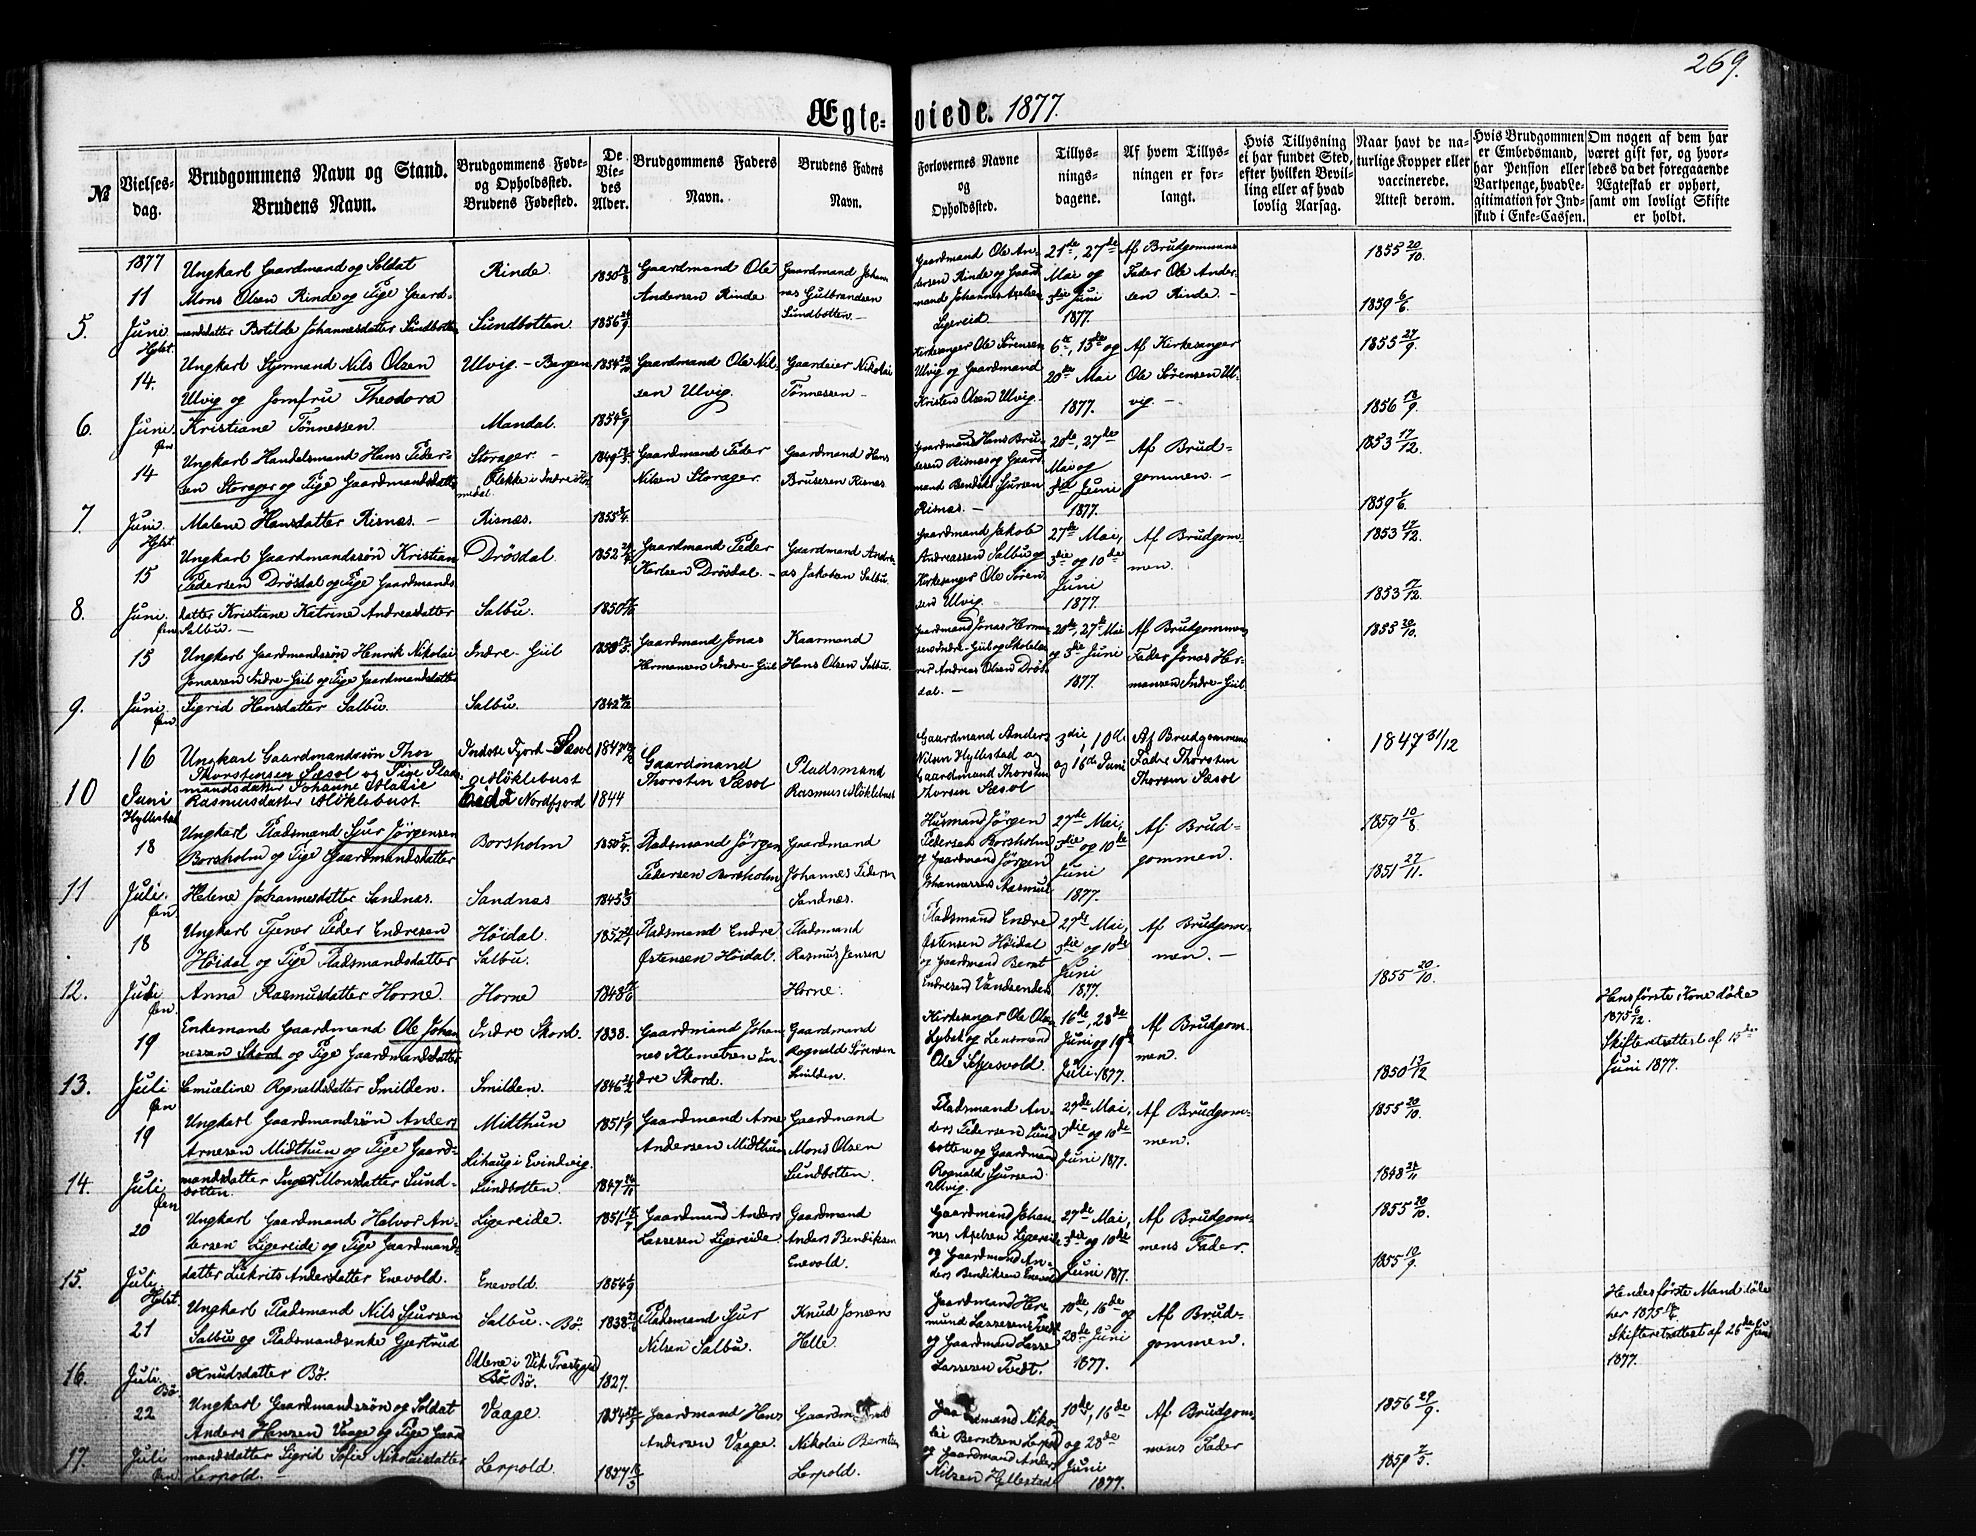 269.
Ægteviede. 1877.
№
Vielses-
dag.
Brudgommens Navn og Stand.
Brudens Navn.
Brudgommens Føde-
og Opholdssted.
Brudens Fødested.
De
Vie-
des
Alder.
Brudgommens Faders
Navn.
Brudens Faders
Navn.
Forlovernes Navne
og
Opholdssted.
Tillys-
nings-
dagene.
Af hvem Tillys-
ningen er for-
langt.
Hvis Tillysning
ei har fundet Sted,
efter hvilken Bevil-
ling eller af hvad
lovlig Aarsag.
Naar havt de na-
turlige Kopper eller
vaccinerede.
Attest derom.
Hvis Brudgommen
er Embedsmand,
har Pension eller
Vartpenge, hvad Le-
gitimation for Ind-
skud i Enke-Cassen.
Om nogen af dem har
været gift før, og hvor-
ledes da det foregaaende
Ægteskab er ophørt,
samt om lovligt Skifte
er holdt.
1877
5.
11
Juni
Hylst.
Ungkarl Gaardmand og Soldat
Mons Olsen Rinde og Pige Gaard-
mandsdatter Botilde Johannesdatter Sundbotten
Rinde.
Sundbotten.
1856
Gaardmand Ole
Andersen Rinde
Gaardmand Johan-
nes Gulbrandsen
Sundbotten. –
Gaardmand Ole An-
dersen Rinde og Gaard-
mand Johannes Axelsen
Ligereid.
21de, 27de
Mai og
3die Juni
1877.
Af Brudgommens
Fader Ole Ander-
sen Rinde. –
1855 20/10.
1859 6/6.
6.
14.
Juni.
Øen
Ungkarl Styrmand Nils Olsen
Ulvig og Jomfru Theodora
Kristiane Tönnessen.
Ulvig. – Bergen
Mandal.
1854 6/9
Gaardmand Ole Nil-
sen Ulvig.
Gaardeier Nikolai
Tönnessen –
Kirkesanger Ole Sörensen
Ulvig og Gaardmand
Kristen Olsen Ulvig.
6te, 13de og
20de Mai
1877.
Af Kirkesanger
Ole Sörensen Ul-
vig. –
1855 27/9.
1856 18/9.
7.
14
Juni.
Hylst.
Ungkarl Handelsmand Hans Peder-
sen Storager og Pige Gaardmandsdatter
Malene Hansdatter Risnæs. –
Storager. –
Risnæs.
Gaardmand Peder
Nilsen Storager.
Gaardmand Hans
Brusesen Risnæs
Gaardmand Hans Bru-
sesen Risnæs og Gaard-
mand Bendik Sjursen
Risnæs. –
20de, 27de
Mai og
3die Juni
1877.
Af Brud-
gommen. –
1853 17/12.
8.
15
Juni.
Øen
Ungkarl Gaardmandssön Kristian
Pedersen Drösdal og Pige Gaardmands-
datter Kristiane Katrine Andreasdatter
Salbu. –
Drösdal.
Salbu.
Gaardmand Peder
Karlsen Drösdal. –
Gaardmand Andre-
as Jakobsen Salbu.
Gaardmand Jakob
Andreassen Salbu og
Kirkesanger Ole Sören-
sen Ulvig.
27de Mai,
3die og 10de
Juni
1877.
Af Brudgom-
men.
1853 17/12.
1853 17/12.
9.
15
Juni.
Øen
Ungkarl Gaardmandssön Henrik Nikolai
Jonassen Indre-Giil og Pige Gaardmandsdatter
Sigrid Hansdatter Salbu.
Indre-Giil
Salbu.
Gaardmand Jonas
Hermansen Indre-Giil
Kaarmand
Hans Olsen Salbu.
20de, 27de Mai
og 3die Juni
1877.
Af Brudgommens
Fader Jonas Her-
mansen Indre-Giil
1855 20/10.
10
16
Juni
Hyllestad
Ungkarl Gaardmandssøn Thor
Thorstensen Sæsol og Pige Plads-
mandsdatter Johanne Malie
Rasmusdatter Møklebust.
Indste Fjord – Sæsol
Møklebust
Nordfjord
1844
Gaardmand
Thorsten Sæsol
Pladsmand
Rasmus Møklebust
Gaardmand Anders
Nilsen Hyllestad og
Gaardmand Thorsten
Thorsen Sæsol
3die, 10de
og 16de Juni
Af Brudgommens
Fader Thorsten
Thorsen Sæsol
1847 31/12
11
18
Juli.
Øen
Ungkarl Pladsmand Sjur Jörgensen
Borsholm og Pige Gaardmandsdatter
Helene Johannesdatter Sandnæs.
Borsholm
Sandnæs
Pladsmand Jörgen
Pedersen Borsholm
Gaardmand
Johannes Pedersen
Sandnæs.
Husmand Jörgen
Pedersen Borsholm
og Gaardmand Jörgen
27de Mai,
3die og 10de
Juni
1877.
Af Brud-
gommen.
1859 10/8
1851 27/11.
12.
18
Juli
Øen
Ungkarl Tjener Peder Endresen
Höidal og Pige Pladsmandsdatter
Anna Rasmusdatter Horne.
Höidal.
Salbu.
Horne
Pladsmand Endre
Østensen Höidal.
Pladsmand
Rasmus Jensen
Horne.
Pladsmand Endre
Østensen Höidal
og Gaardmand Bernt
27de Mai,
3die og 10de
Juni
1877.
Af Brudgom-
men. –
1855 20/10.
13.
19
Juli
Øen
Enkemand Gaardmand Ole Johan-
nessen Skord og Pige Gaardmandsdatter
Samueline Rognaldsdatter Smilden.
Indre Skord.
Smilden.
1838.
Gaardmand Johan-
nes Klemetsen In-
dre Skord.
Gaardmand
Rognald Sörensen
Smilden.
Kirkesanger Ole Olsen
og Lensmand
16de, 23de
Juni og 1ste
Juli 1877.
Af Brudgom-
men.
1850 13/12
Hans förste Kone döde
1875 6/12.
Skifteretsattest af 15de
Juni 1877.
14.
19
Juli
Øen
Ungkarl Gaardmandssön Anders
Arnesen Midthun og Pige Gaard-
mandsdatter Inger Monsdatter Sund-
botten.
Midthun
Lihaug i Evindvig.
Sundbotten.
Gaardmand Arne
Andersen Midthun
Gaardmand
Mons Olsen
Sundbotten.
Pladsmand An-
ders Pedersen Sund-
botten og Gaardmand
Rognald Sjursen
Ulvig.
27de Mai,
3die og 10de
Juni 1877.
Af Brudgom-
men.
1855 20/10.
15.
20
Juli.
Hylst.
Ungkarl Gaardmand Halvor An-
dersen Ligereide og Pige Gaardmands-
datter Lukrits Andersdatter Enevold.
Ligereide.
Enevold.
Gaardmand Anders
Lassesen Ligereide
Gaardmand
Anders Bendiksen
Enevold.
Gaardmand Johan-
nes Axelsen Ligereide
og Gaardmand An-
ders Bendiksen Enevold
27de Mai,
3die og 10de
Juni 1877.
Af Brudgom-
mens Fader.
1855 20/10.
1855 19/9.
16.
21
Juli.
Bø.
Ungkarl Pladsmand Nils Sjursen
Salbu og Pladsmandsenke Gjertrud
Knudsdatter Bø.
Salbu. – Bø.
Bø.
1827.
Pladsmand Sjur
Nilsen Salbu.
Knud Jonsen
Helle.
Gaardmand Her-
mund Lassesen Tveit
og Gaardmand Lasse
Lassesen Tveit.
10de, 16de og
23de Juni
1877.
Af Brud-
gommen.
Hendes förste Mand döde
her 1875
Skifteretsattest af 26de Juni
1877.
17.
22
Juli
Øen
Ungkarl Gaardmandssön og Soldat
Anders Hansen Vaage og Pige Gaard-
mandsdatter Sigrid Sofie Nikolaisdatter
Lerpold.
Vaage.
Lerpold.
Gaardmand Hans
Andersen Vaage.
Gaardmand
Nikolai Berntsen
Lerpold.
Gaardmand Niko-
lai Berntsen Lerpold
og Gaardmand Anders
Nilsen Hyllestad
10de, 16de
og 23de
Juni
1877.
Af Brudgom-
mens Fader
1856 29/9.